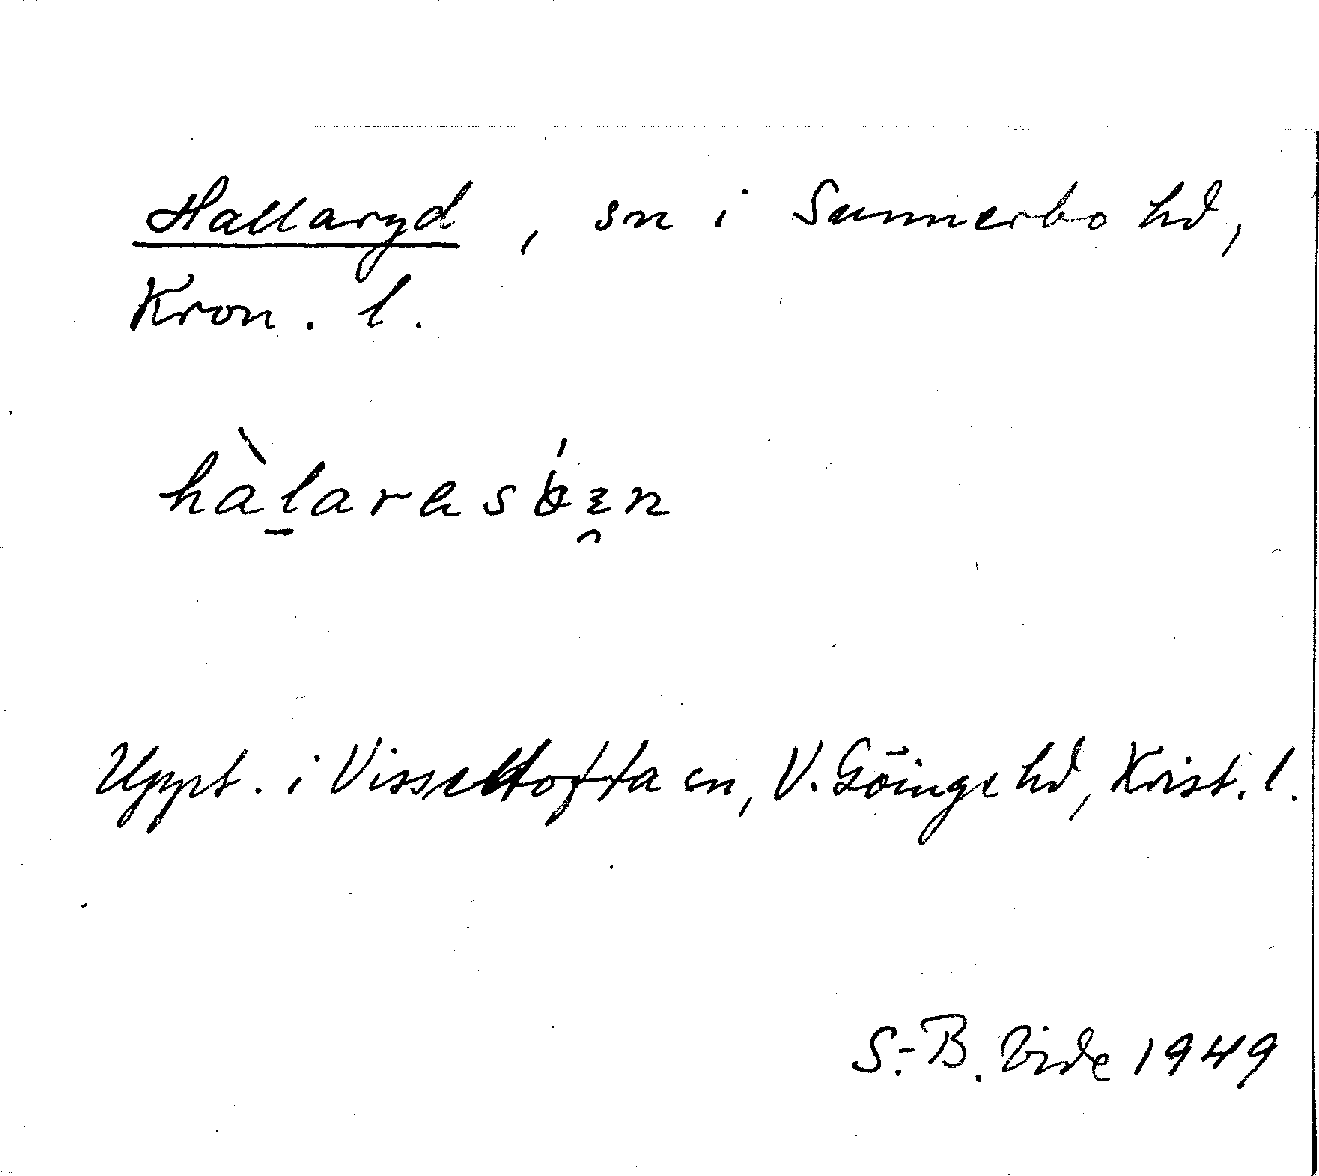 Hallaryd, sn i Sunnerbo hd,
Kron. l.
Uppt. i Visseltofta sn, V. Göinge hd, Krist. l.
S.-B. Vide 1949